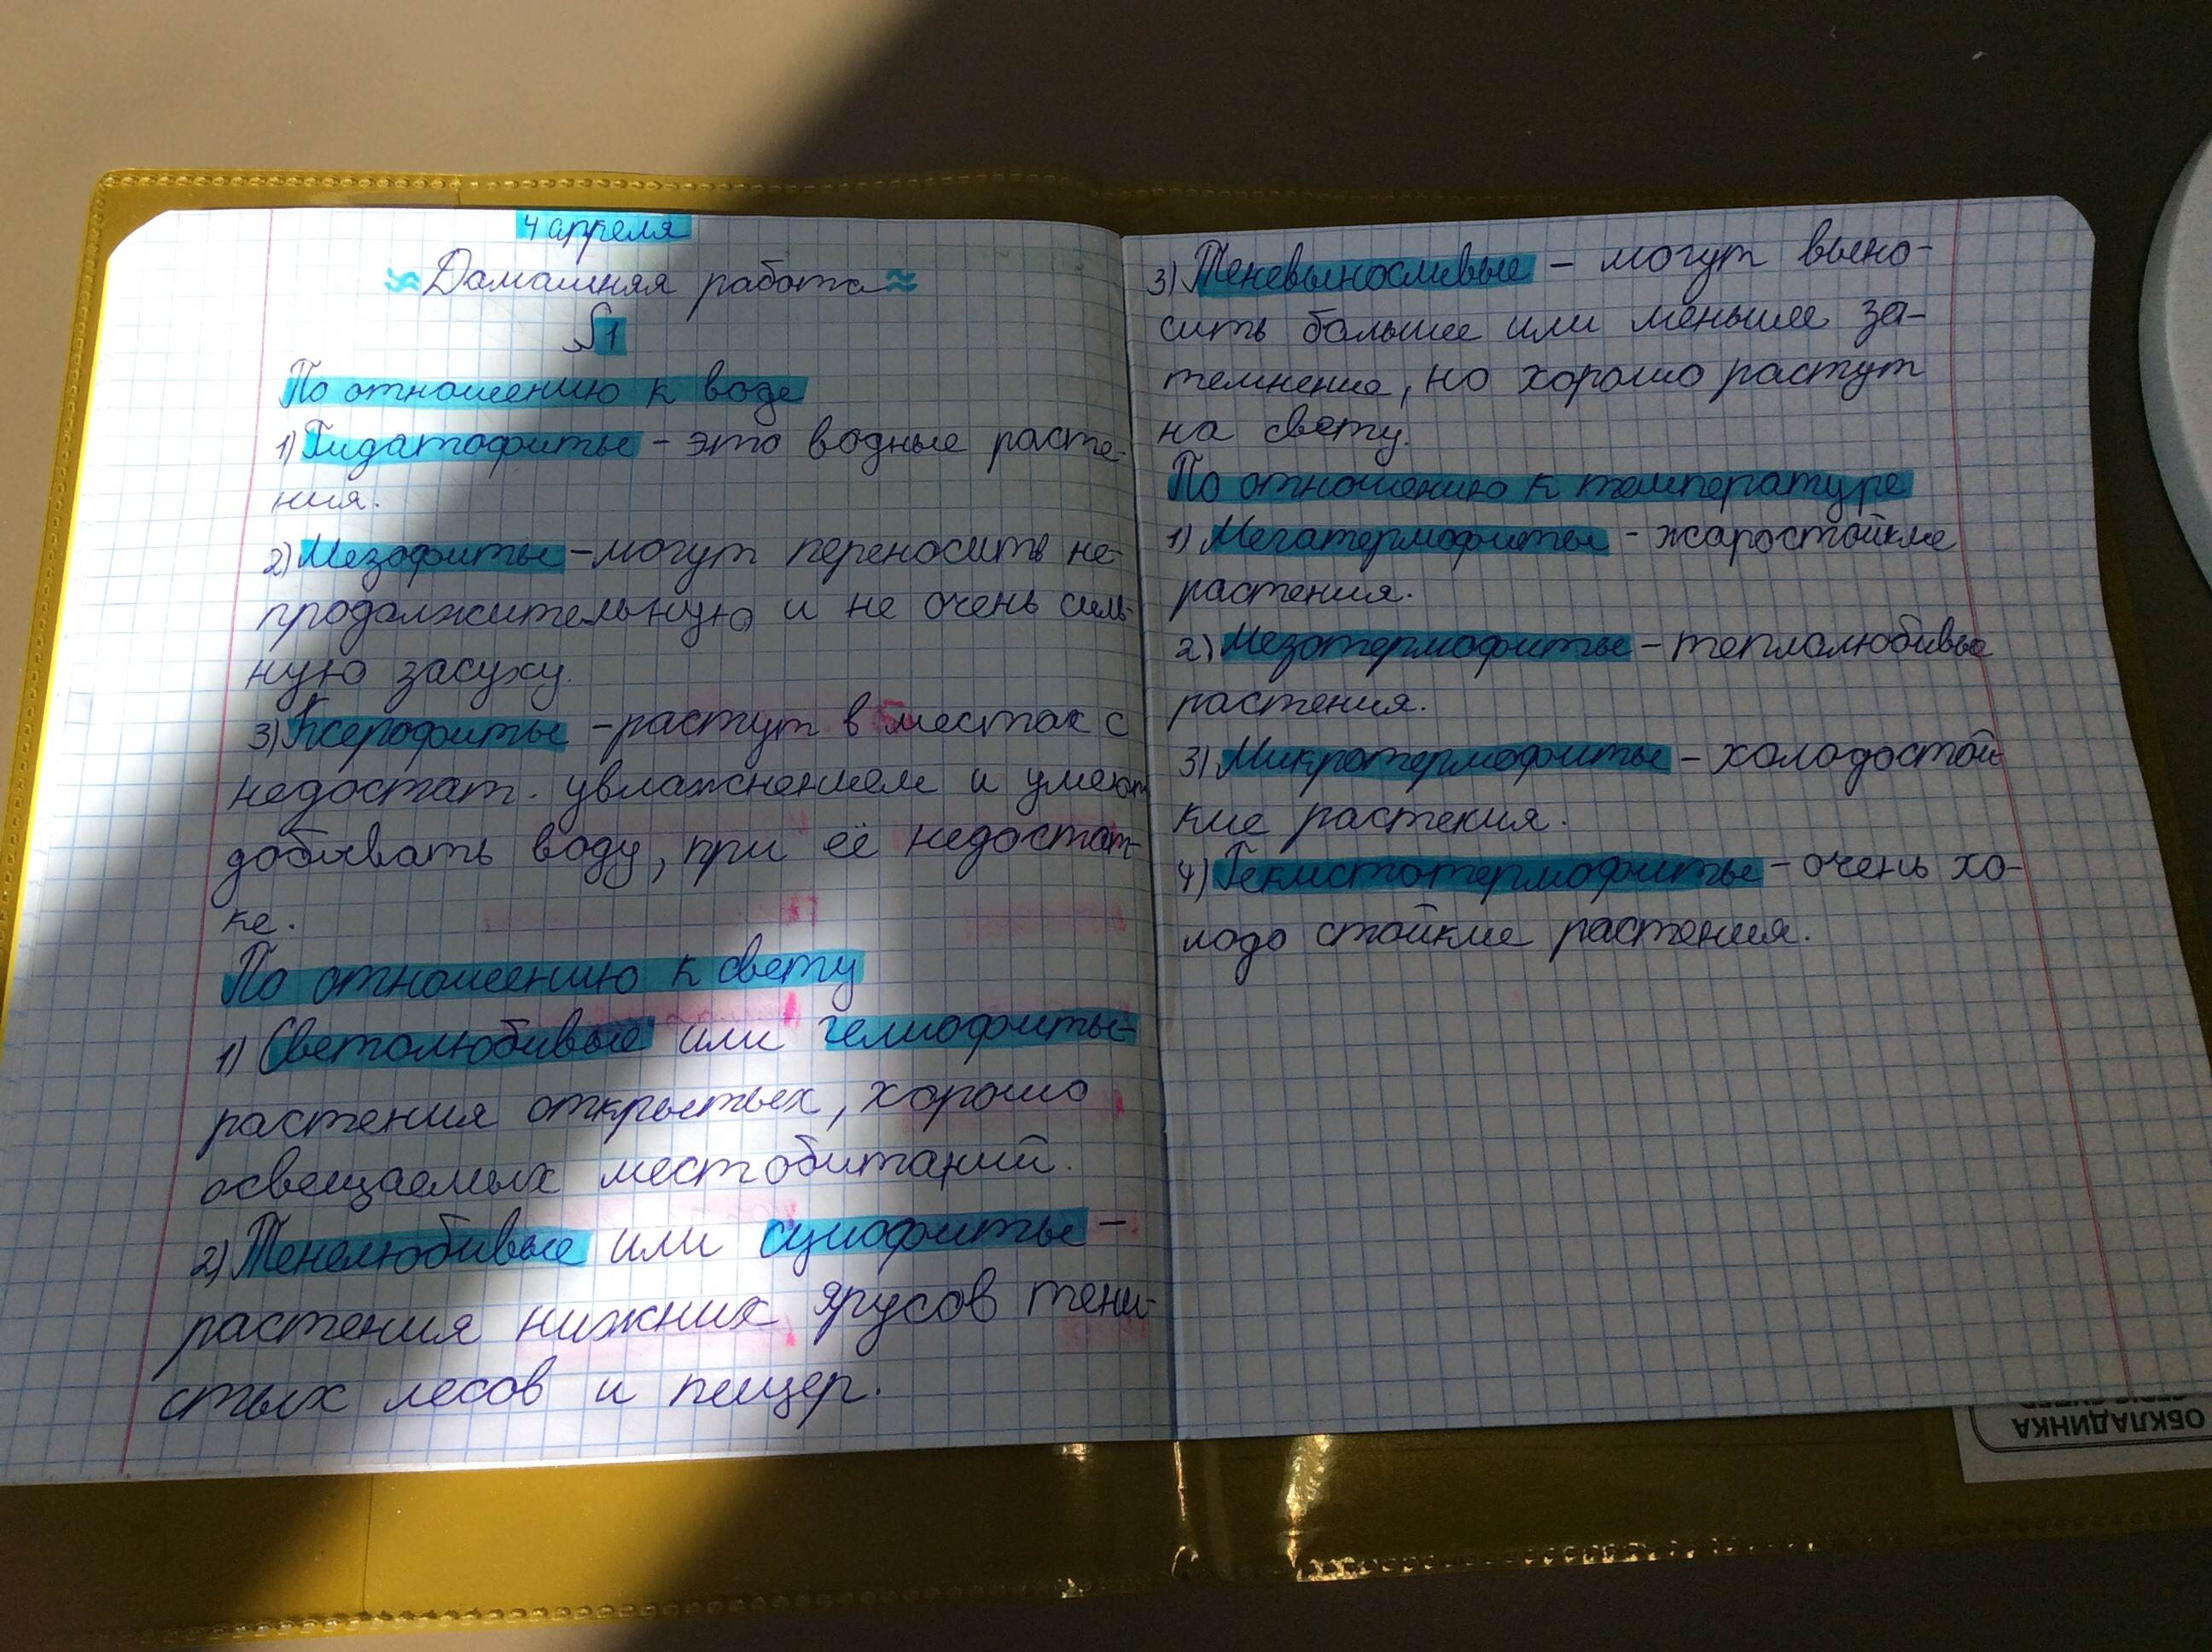 4 апреля
≈Домашняя работа≈
§1
По отношению к воде
1) Гидатофиты - это водные расте-
ния.
2) Мезофиты - могут переносить не-
продолжительную и не очень силь-
ную засуху.
3) Ксерофиты - растут в местах с
недостат. увлажнением и умеют
добывать воду, при её недостат-
ке.
По отношению к свету
1) Светолюбивые или гелиофиты-
растения открытых, хорошо
освещаемых местобитаний.
2) Тенелюбивые или сциофиты -
растения нижних ярусов тени-
стых лесов и пещер.
3) Теневыносливые - могут выно-
сить большее или меньшее за-
темнение, но хорошо растут
на свету.
По отношению к температуре
1) Мегатермофиты - жаростойкие
растения.
2) Мезотермофиты - теплолюбивые
растения.
3) Микротермофиты - холодостой-
кие растения.
4) Гекистотермофиты - очень хо-
лодо стойкие растения.
ОБКЛАДИНКА